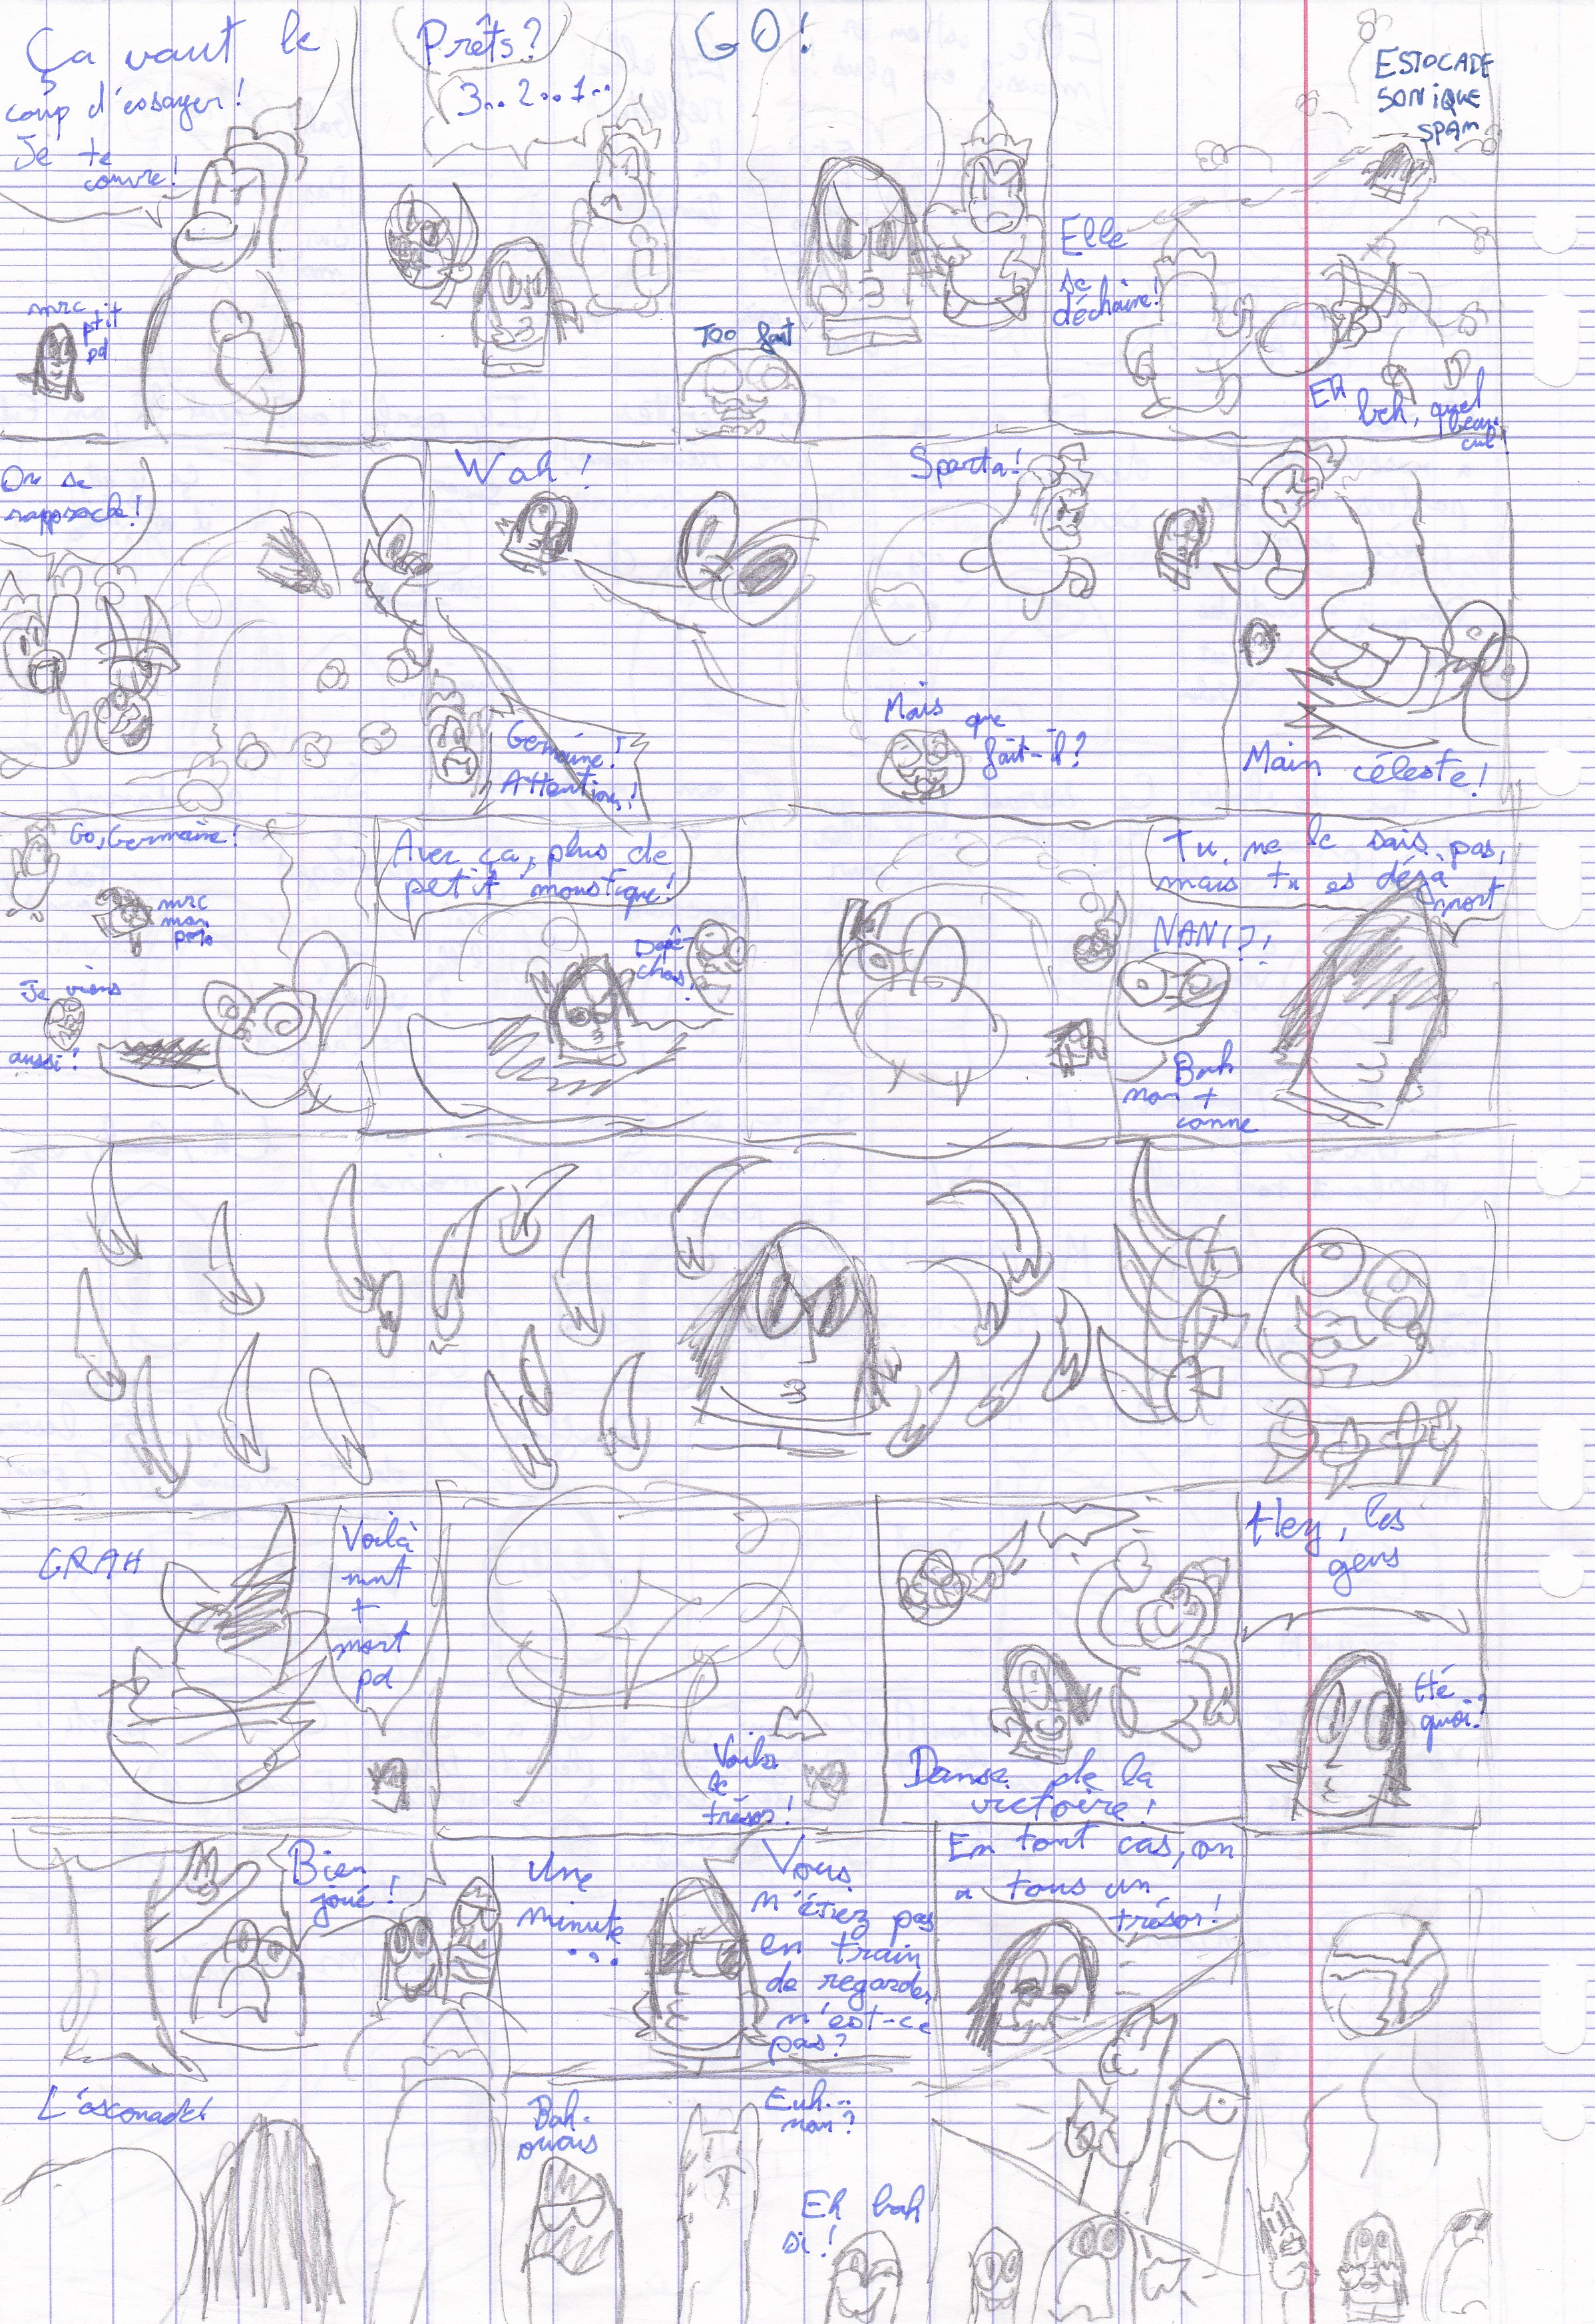 Ça vaut le
coup d'essayer!
Je te
couvre!
mrc
ptit
pd
Prêts?
3.. 2.. 1..
GO!
TOO fast
ESTOCADE
SONIQUE
SPAM
Elle
se
déchaîne!
Eh
beh, quel
beau
cul
On se
rapproche!
Wah!
Germaine!
Attention!
Sparta!
Mais que
fait-il?
Main céleste!
Go, Germaine!
mrc
mon
poto
Je viens
aussi!
Avec ça, plus de
petit moustique!
Dépê-
chos!
Tu ne le sais pas,
mais tu es déjà
mort
NANI?!
Bah
non +
conne
GRAH
Voilà
mnt
+
mort
pd
Voilà
le
trésor!
Danse de la
victoire!
Hey, les
gens
Hé
quoi?
Bien
joué!
Une
minute
...
Vous
n'étiez pas
en train
de regarder
n'est-ce
pas?
En tout cas, on
a tous un
trésor!
Bah
ouais
Euh...
non?
Eh bah
si!